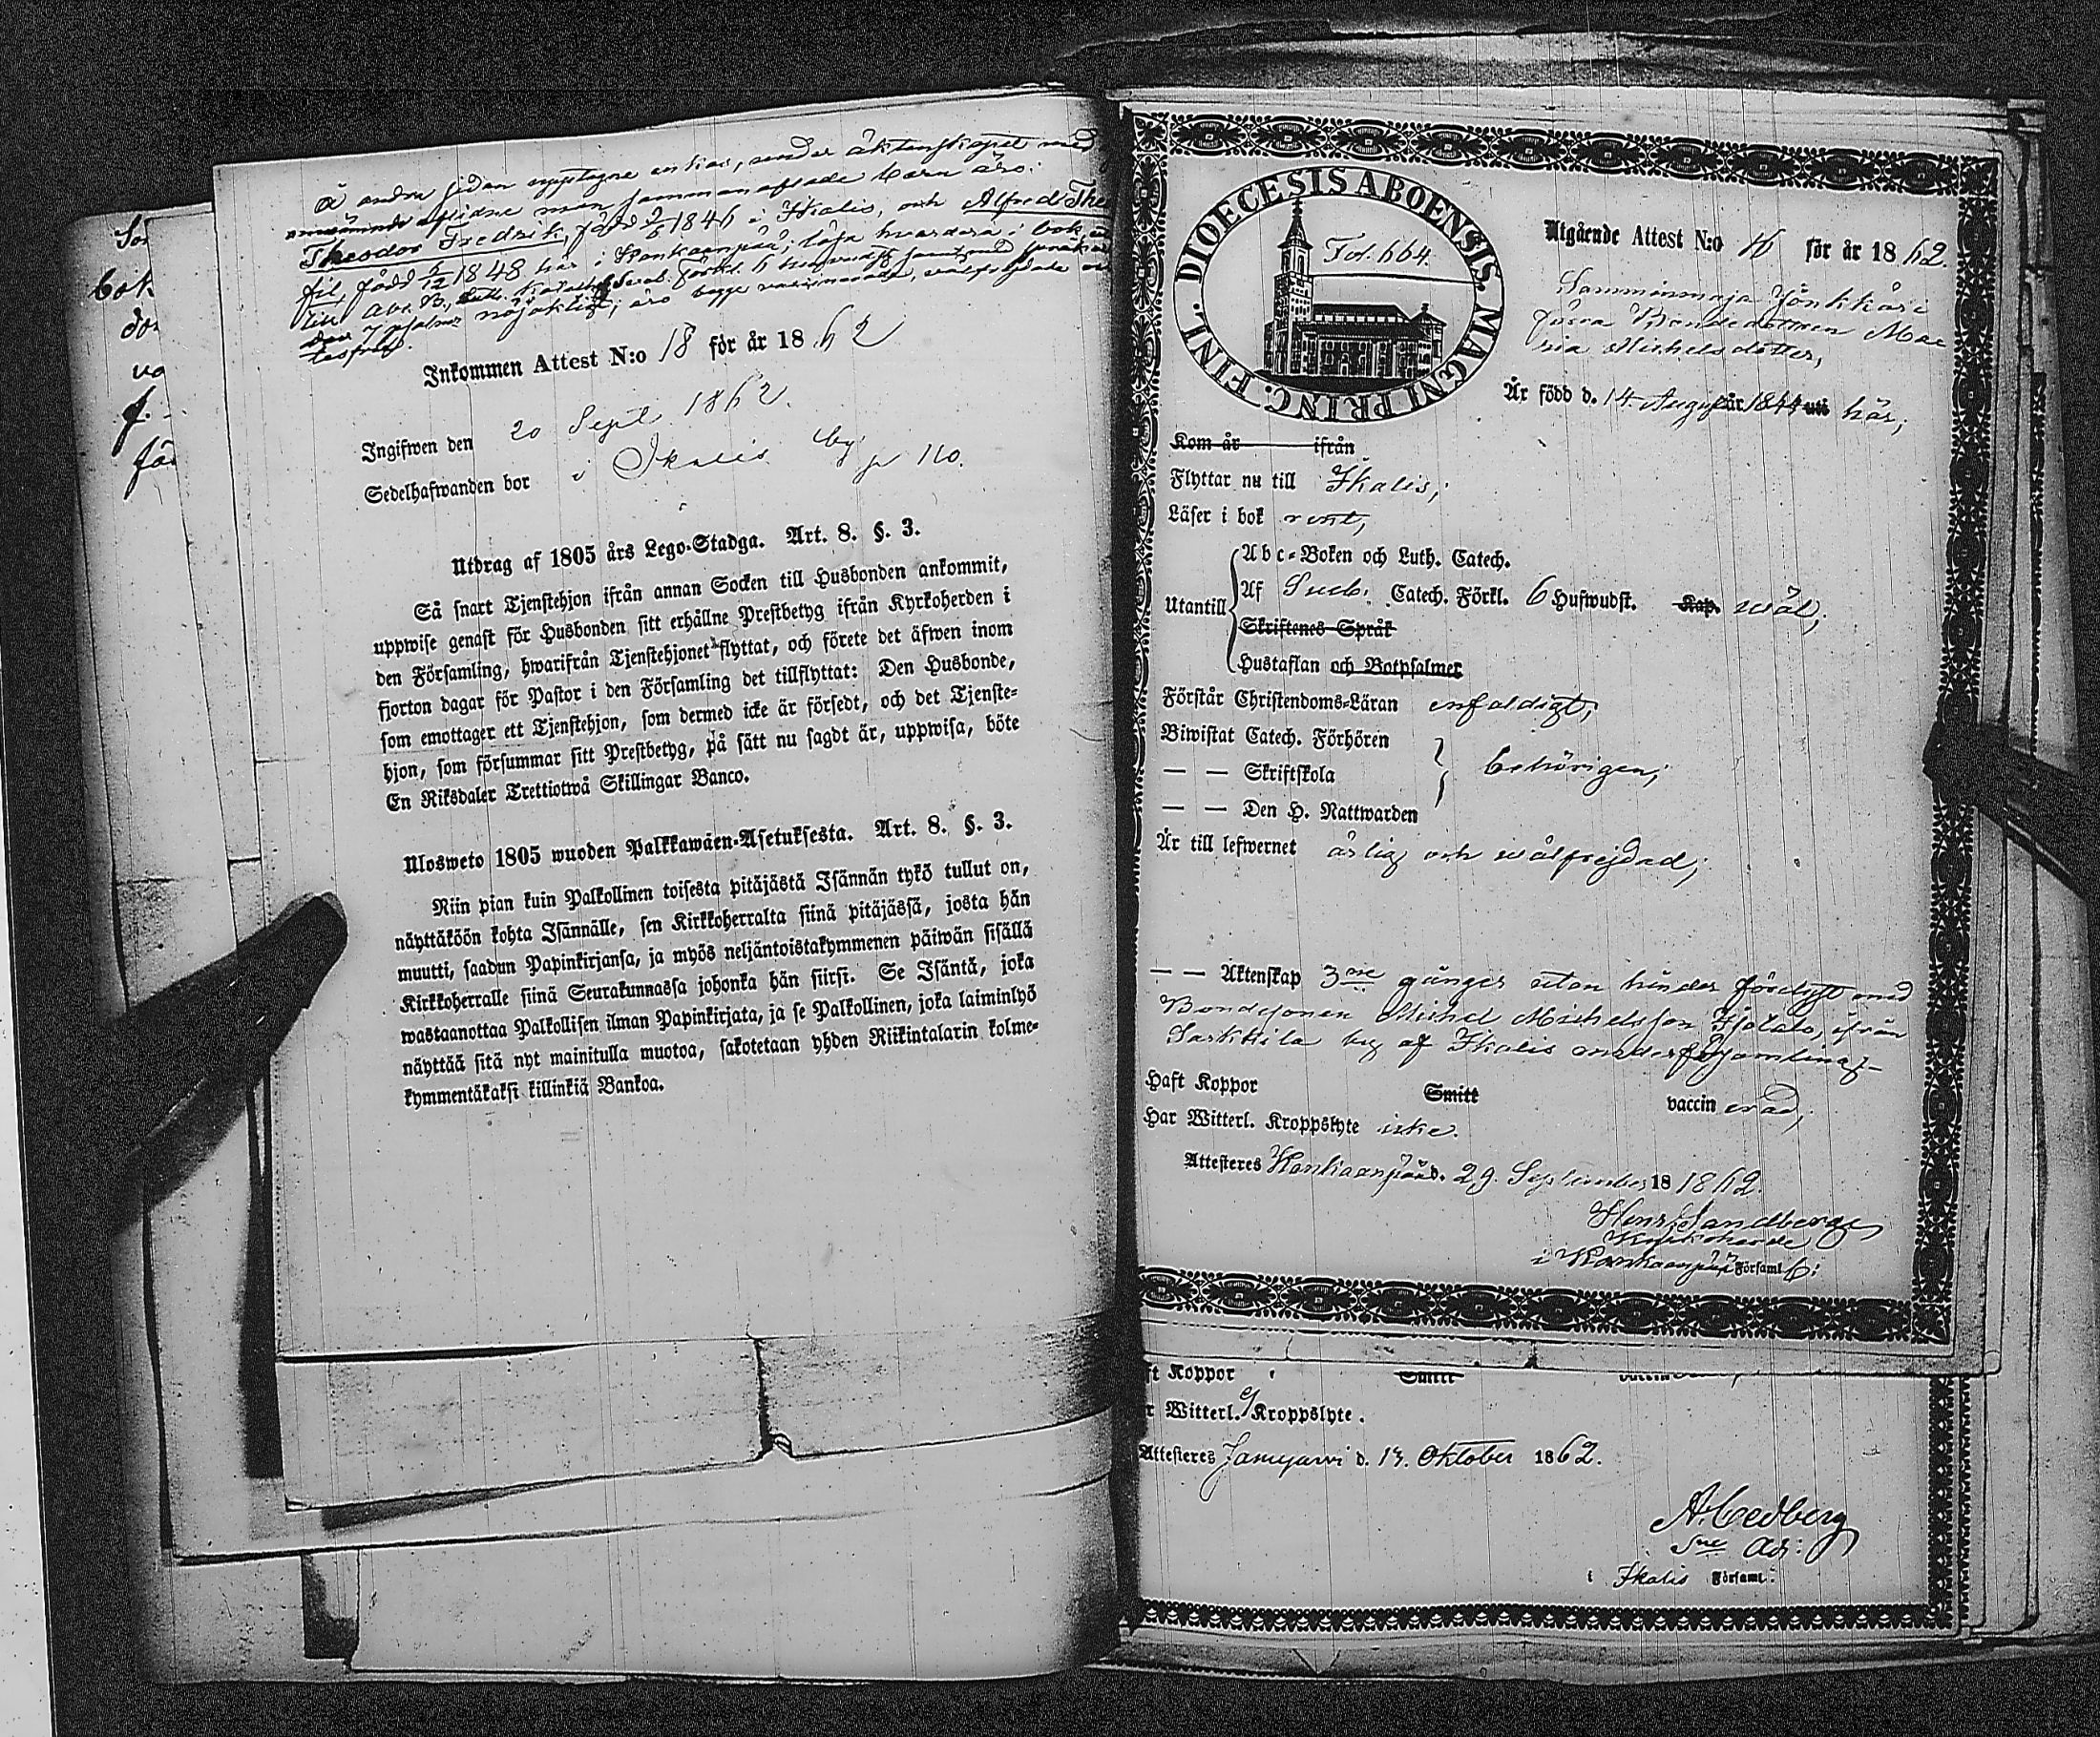 Å andra sidan upptagne enkas, under äktenskapet med
aflidne man sammanaflade barn äro:
Theodor Fredrik, född 2/6 1846 i Ikalis, och Alfred The
fil, född 6/12 1848 här i Kankaanpää; läsa hvardera i bok
till Abc B, Luth. förkl. 6 hufvudst samt
psalmer nöjaktigt; äro begge vaccinerade,
Inkommen Attest N:o 18 för år 1862
Ingifwen den 20 Sept. 1862.
Sedelhafwanden bor i Ikalis by p 110.
Utdrag af 1805 års Lego-Stadga. Art. 8. §. 3.
Så snart Tjenstehjon ifrån annan Socken till Husbonden ankommit,
uppwise genast för Husbonden sitt erhållne Prestbetyg ifrån Kyrkoherden i
den Församling, hwarifrån Tjenstehjonet flyttat, och förete det äfwen inom
fjorton dagar för Pastor i den Församling det tillflyttat: Den Husbonde,
som emottager ett Tjenstehjon, som dermed icke är försedt, och det Tjenste-
hjon, som försummar sitt Prestbetyg, på sätt nu sagdt är, uppwisa, böte
En Riksdaler Trettiotwå Skillingar Banco.
Ulosweto 1805 wuoden Palkkawäen-Asetuksesta. Art. 8. §. 3.
Niin pian kuin Palkollinen toisesta pitäjästä Isännän tykö tullut on,
näyttäköön kohta Isännälle, sen Kirkkoherralta siinä pitäjässä, josta hän
muutti, saadun Papinkirjansa, ja myös neljäntoistakymmenen päiwän sisällä
Kirkkoherralle siinä Seurakunnassa johonka hän siirsi. Se Isäntä, joka
wastaanottaa Palkollisen ilman Papinkirjata, ja se Palkollinen, joka laiminlyö
näyttää sitä nyt mainitulla muotoa, sakotetaan yhden Riikintalarin kolme-
kymmentäkaksi killinkiä Bankoa.
DIOECESIS ABOENSIS. MAGNI PRINC. FINL.
Fol. 664.
Utgående Attest N:o 16 för år 1862.
Samminmaja Jönkkäri
Bondedottren Ma
ria Michelsdotter,
Är född d. 14 Augusti år 1844 uti här;
Kom år ifrån
Flyttar nu till Ikalis;
Läser i bok rent,
Utantill
Abc-Boken och Luth. Catech.
Af Sveb. Catech. Förkl. 6 Hufwudst. Kap. wäl;
Skriftenes Språk
Hustaflan och Botpsalmer
Förstår Christendoms-Läran enfaldigt;
Biwistat Catech. Förhören
— — Skriftskola behörigen;
— — Den H. Nattwarden
Är till lefwernet ärlig och wälfrejdad;
— — Äktenskap 3ne gånger utan hinder förelyst med
Bondesonen Michel Michelsson Isotalo, ifrån
Sarkkila by af Ikalis moderförsamling;-
Haft Koppor Smitt vaccinerad;
Har Witterl. Kroppslyte icke.
Attesteres Kankaanpää d. 29. September 18 1862.
Henr. Sandberg,
Kyrkoherde
i Kankaanpää Församl.
ft Koppor Smitt
r Witterl. ej Kroppslyte.
Attesteres Jämijärvi d. 13. Oktober 1862.
A. Cedberg
Sne Adj:
i Ikalis Församl.